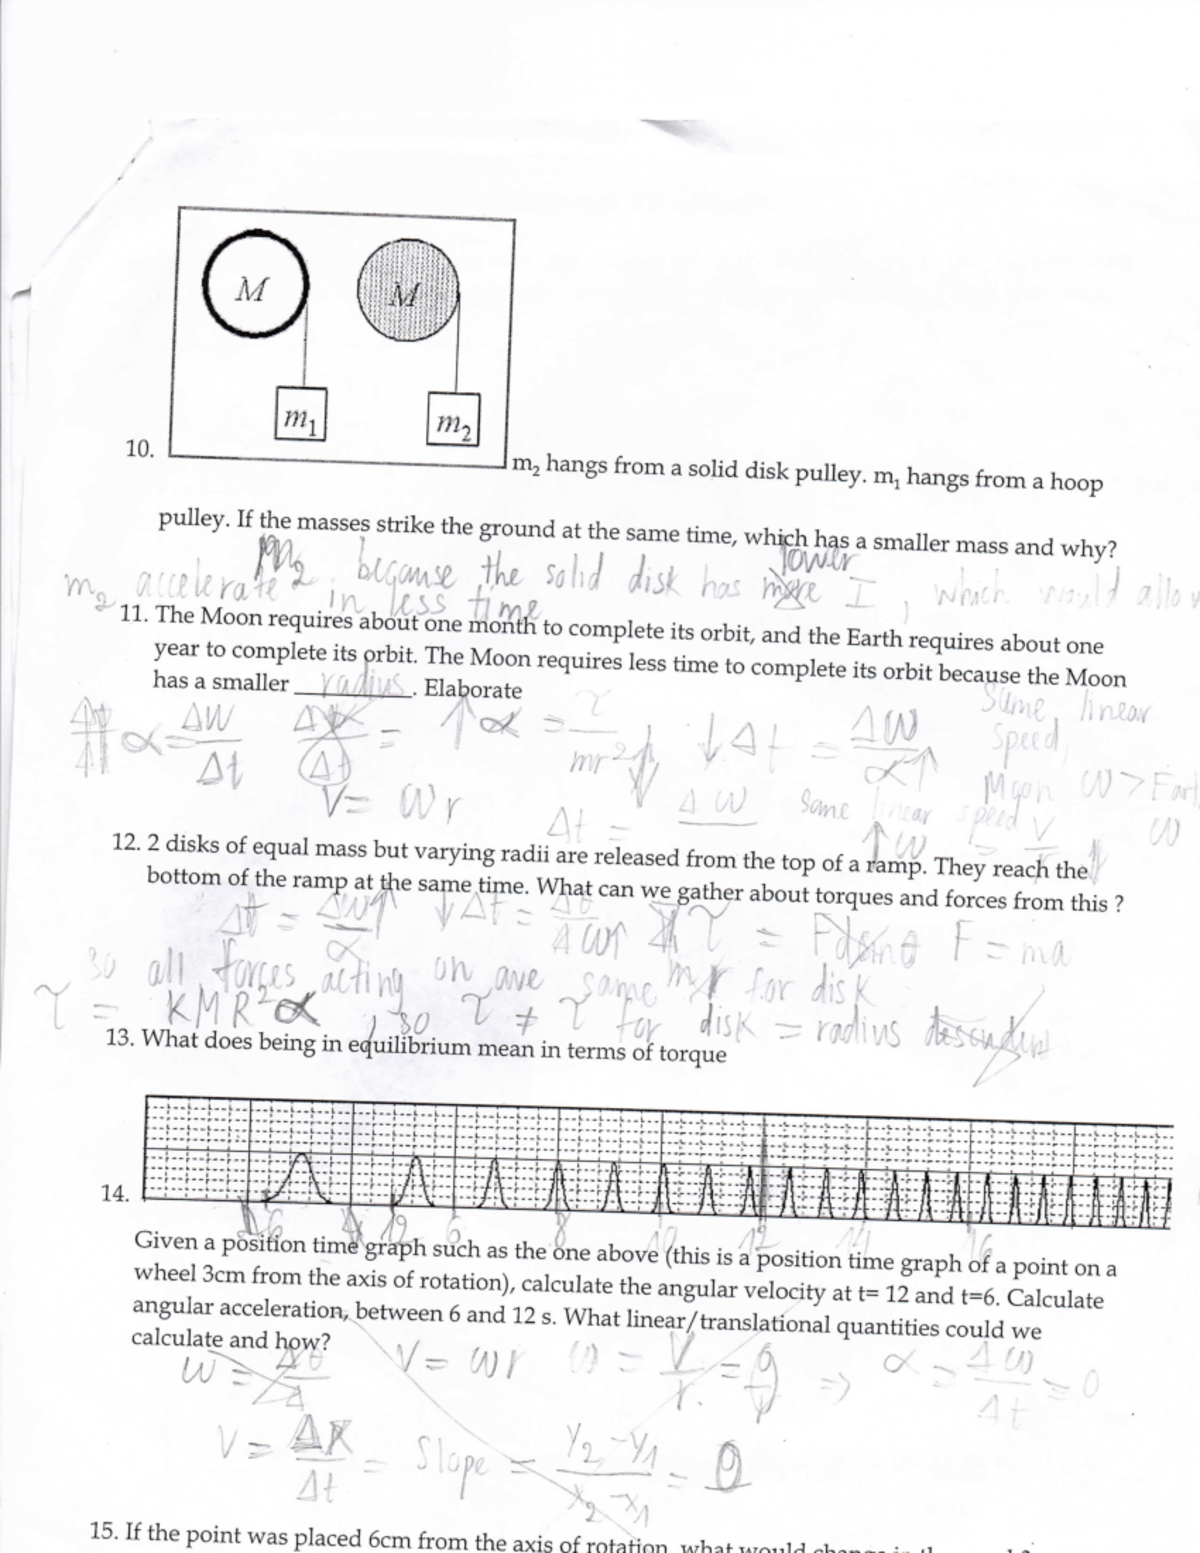 M
M
m₁
m₂
10.
m₂ hangs from a solid disk pulley. m₁ hangs from a hoop
pulley. If the masses strike the ground at the same time, which has a smaller mass and why?
lower
m₂ because the solid disk has more I, which would allow
m₂ accelerate in less time
11. The Moon requires about one month to complete its orbit, and the Earth requires about one
year to complete its orbit. The Moon requires less time to complete its orbit because the Moon
has a smaller radius. Elaborate
Same linear
speed,
α = Δω/Δt = ↑α = τ/mr²↓ ↓Δt = Δω/α↑
Moon ω > Earth ω
V = ωr
Δt = Δω
same linear speed
↑ω = V/r↓
12. 2 disks of equal mass but varying radii are released from the top of a ramp. They reach the
bottom of the ramp at the same time. What can we gather about torques and forces from this ?
Δt = Δω↑/α ↓Δt = τ = Fdsinθ F = ma
so all forces acting on are same for disk
τ = KMR²α, so τ ≠ τ for disk = radius
13. What does being in equilibrium mean in terms of torque
14.
6 8 10 12 14 16
Given a position time graph such as the one above (this is a position time graph of a point on a
wheel 3cm from the axis of rotation), calculate the angular velocity at t= 12 and t=6. Calculate
angular acceleration, between 6 and 12 s. What linear/translational quantities could we
calculate and how?
ω = Δθ/Δ V = ωr ω = V/r. = 0/r ⇒ α = Δω/Δt = 0
V = ΔX/Δt = Slope = Y₂-Y₁/X₂-X₁ = 0
15. If the point was placed 6cm from the axis of rotation, what would change in